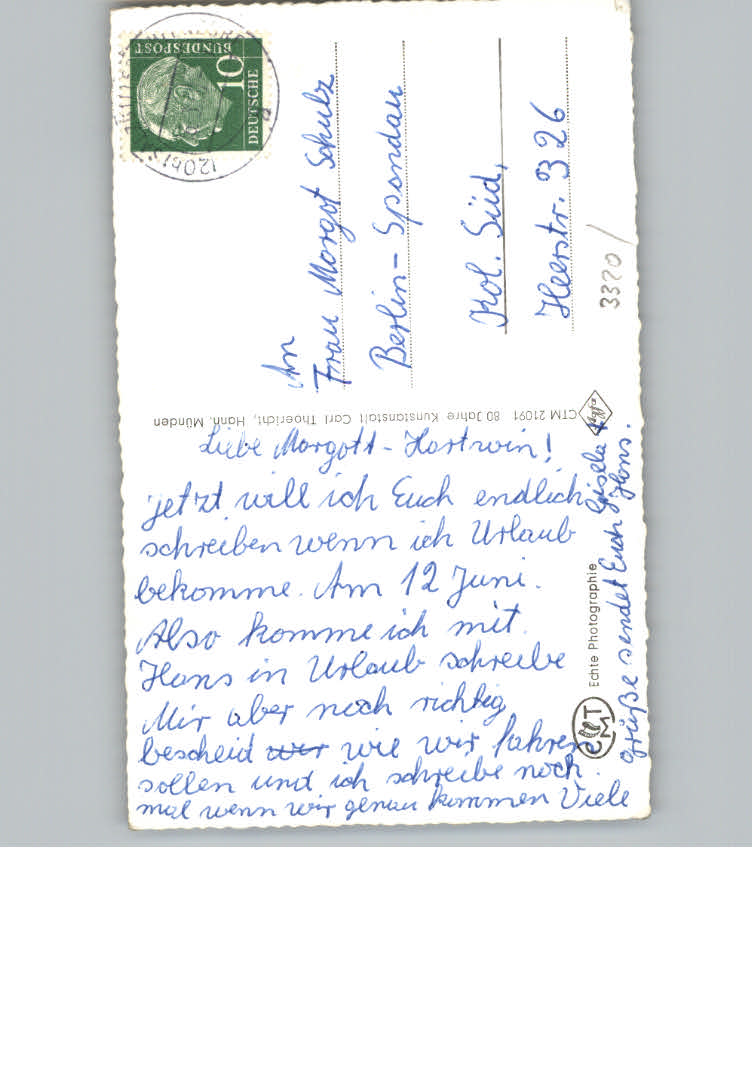 DEUTSCHE
BUNDESPOST
10
(20b)
An
Frau Margot Schulz
Berlin-Spandau
Kol. Süd,
Heerstr. 326
3320/
CTM 21091 80 Jahre Kunstanstalt Carl Thoericht, Hann. Münden
Agfa
Liebe Margott-Hartwin!
jetzt will ich Euch endlich
schreiben wenn ich Urlaub
bekomme. Am 12 Juni.
Also komme ich mit
Hans in Urlaub schreibe
Mir aber noch richtig
bescheid wer wie wir fahren
sollen und ich schreibe noch
mal wenn wir genau kommen Viele
grüße sendet Euch Gisela +
Hans.
Echte Photographie
CMT